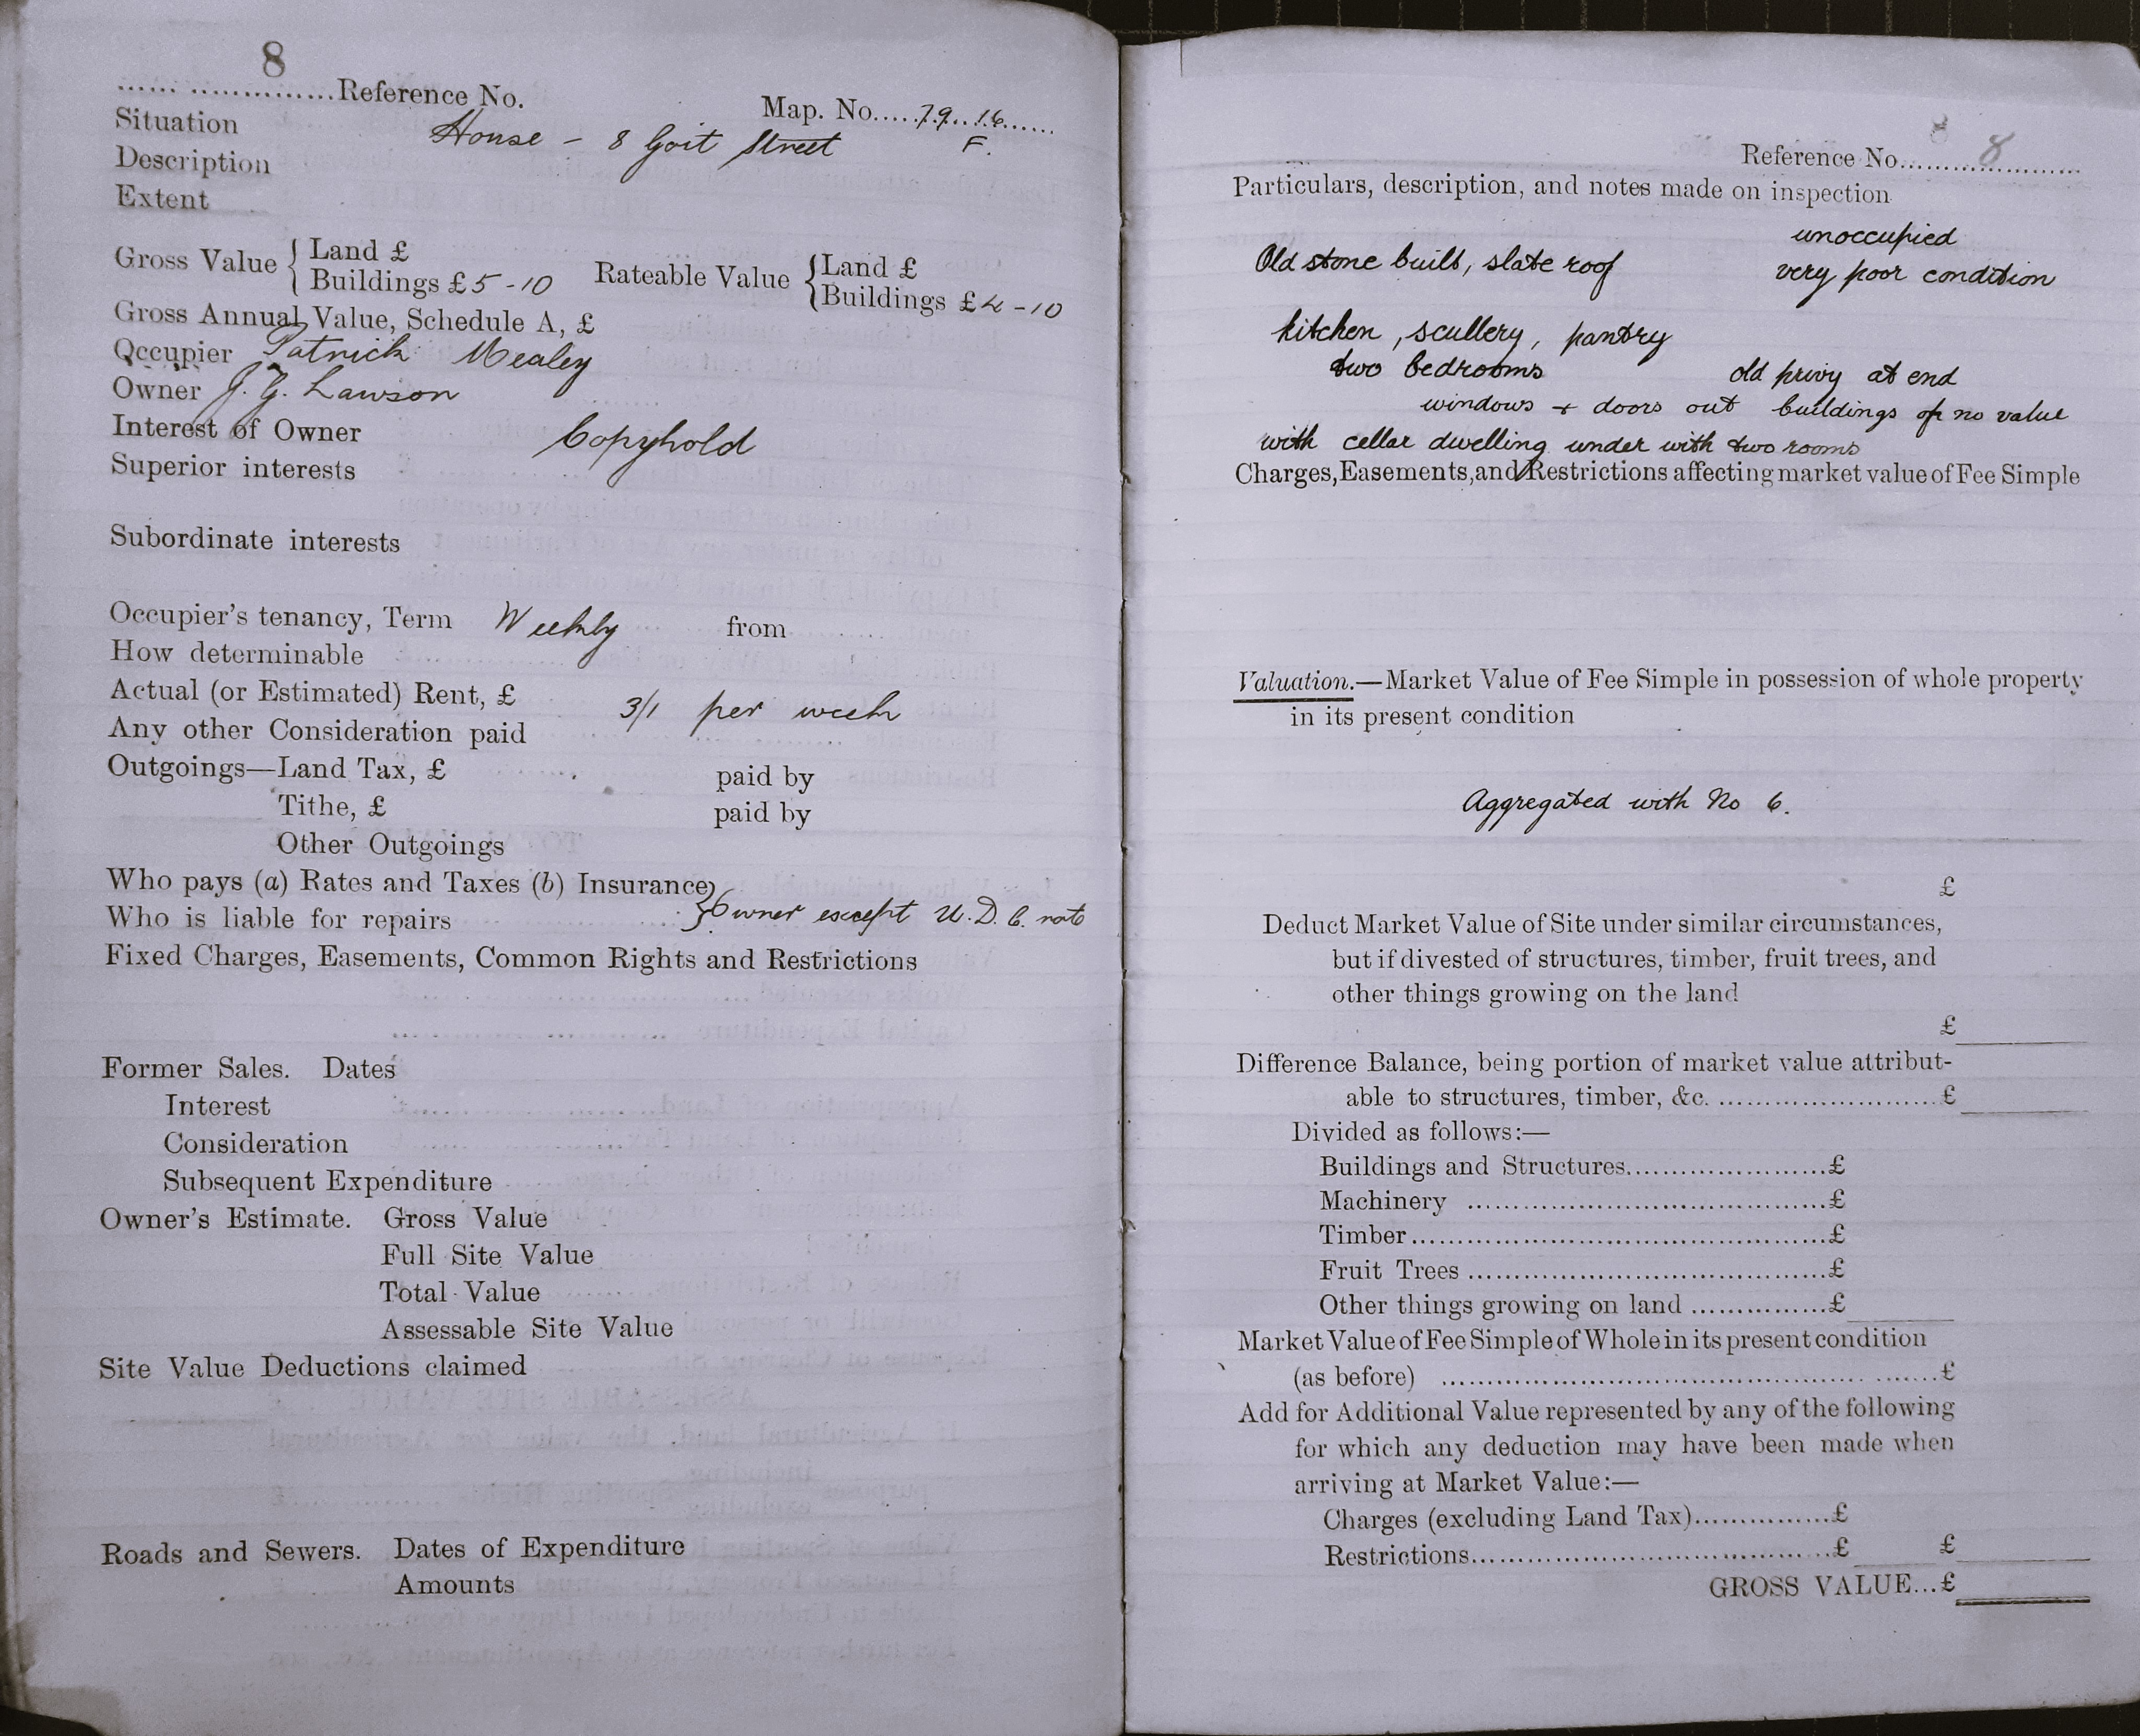 8
...... ..............Reference No.
Map. No.....79..16......
Situation House - 8 Goit Street F.
Description
Extent
Gross Value { Land £
Buildings £5-10
Rateable Value { Land £
Buildings £4-10
Gross Annual Value, Schedule A, £
Occupier Patrick Mealey
Owner J. G. Lawson
Interest of Owner Copyhold
Superior interests
Subordinate interests
Occupier's tenancy, Term Weekly from
How determinable
Actual (or Estimated) Rent, £ 3/1 per week
Any other Consideration paid
Outgoings—Land Tax, £ paid by
Tithe, £ paid by
Other Outgoings
Who pays (a) Rates and Taxes (b) Insurance
Who is liable for repairs } Owner except U.D.C. rate
Fixed Charges, Easements, Common Rights and Restrictions
Former Sales. Dates
Interest
Consideration
Subsequent Expenditure
Owner's Estimate. Gross Value
Full Site Value
Total Value
Assessable Site Value
Site Value Deductions claimed
Roads and Sewers. Dates of Expenditure
Amounts
Reference No.......8.............
Particulars, description, and notes made on inspection
unoccupied
Old stone built, slate roof very poor condition
kitchen, scullery, pantry
two bedrooms old privy at end
windows + doors out buildings of no value
with cellar dwelling under with two rooms
Charges, Easements, and Restrictions affecting market value of Fee Simple
Valuation.—Market Value of Fee Simple in possession of whole property
in its present condition
Aggregated with No 6.
£
Deduct Market Value of Site under similar circumstances,
but if divested of structures, timber, fruit trees, and
other things growing on the land
£
Difference Balance, being portion of market value attribut-
able to structures, timber, &c. ........................£
Divided as follows:—
Buildings and Structures......................£
Machinery .......................................£
Timber.............................................£
Fruit Trees .......................................£
Other things growing on land ...............£
Market Value of Fee Simple of Whole in its present condition
(as before) .....................................................£
Add for Additional Value represented by any of the following
for which any deduction may have been made when
arriving at Market Value:—
Charges (excluding Land Tax)...............£
Restrictions.......................................£ £
GROSS VALUE...£